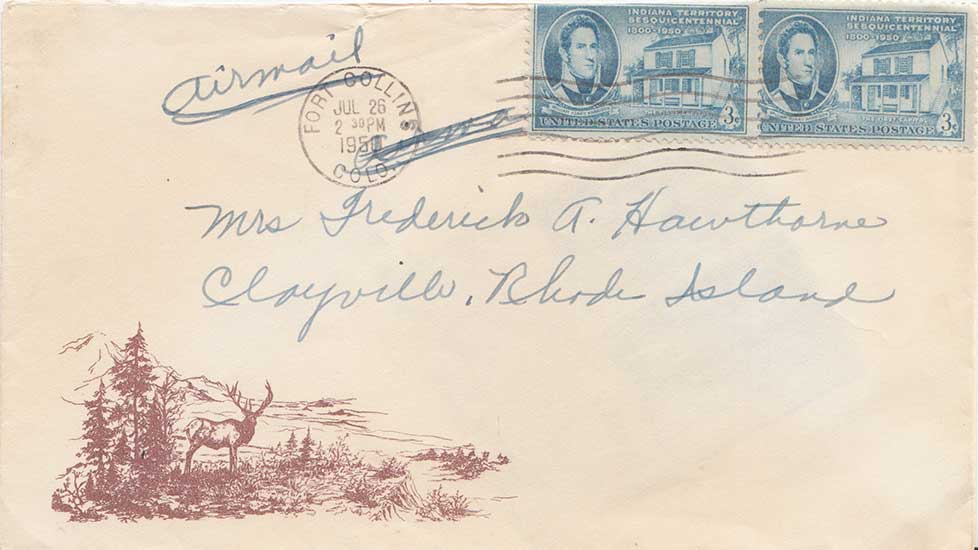 INDIANA TERRITORY
SESQUICENTENNIAL
1800-1950
THE FIRST CAPITOL
UNITED STATES POSTAGE 3¢
INDIANA TERRITORY
SESQUICENTENNIAL
1800-1950
THE FIRST CAPITOL
UNITED STATES POSTAGE 3¢
airmail
FORT COLLINS
JUL 26
2 30 PM
1950
COLO.
airmail
Mrs Frederick A. Hawthorne
Clayville, Rhode Island